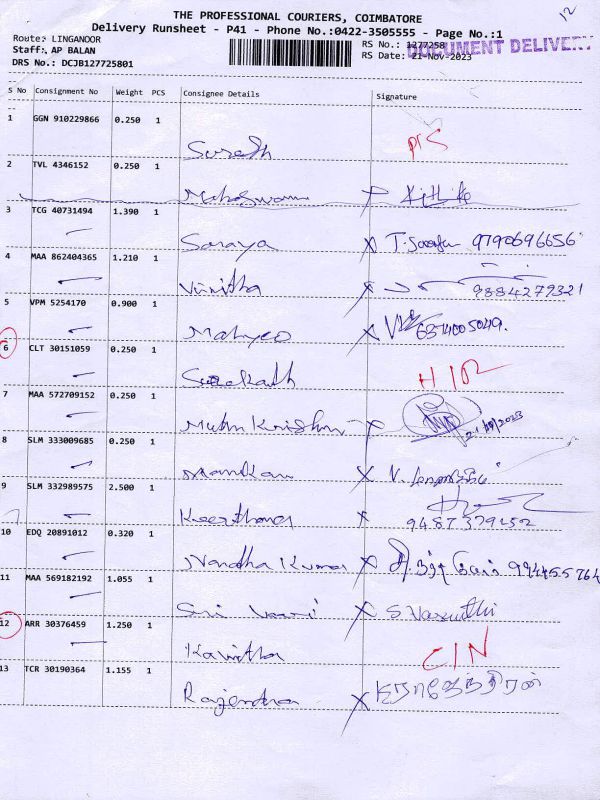 12
THE PROFESSIONAL COURIERS, COIMBATORE
Delivery Runsheet - P41 - Phone No.:0422-3505555 - Page No.:1
Route: LINGANOOR
RS No.: 1277258
DOCUMENT DELIVERY
Staff: AP BALAN
RS Date: 21-Nov-2023
DRS No.: DCJB127725801
S No Consignment No Weight PCS Consignee Details Signature
1 GGN 910229866 0.250 1
Suresh
2 TVL 4346152 0.250 1
3 TCG 40731494 1.390 1
Saraya 9790696656
4 MAA 862404365 1.210 1
Vinitha 9884279321
5 VPM 5254170 0.900 1
6 CLT 30151059 0.250 1
7 MAA 572709152 0.250 1
Muthu Krishna 21/11/2023
8 SLM 333009685 0.250 1
V.
9 SLM 332989575 2.500 1
Keerthana
10 EDQ 20891012 0.320 1
Nandha Kumar
11 MAA 569182192 1.055 1
Sri S.
12 ARR 30376459 1.250 1
Kavitha CIN
13 TCR 30190364 1.155 1
Rajendra